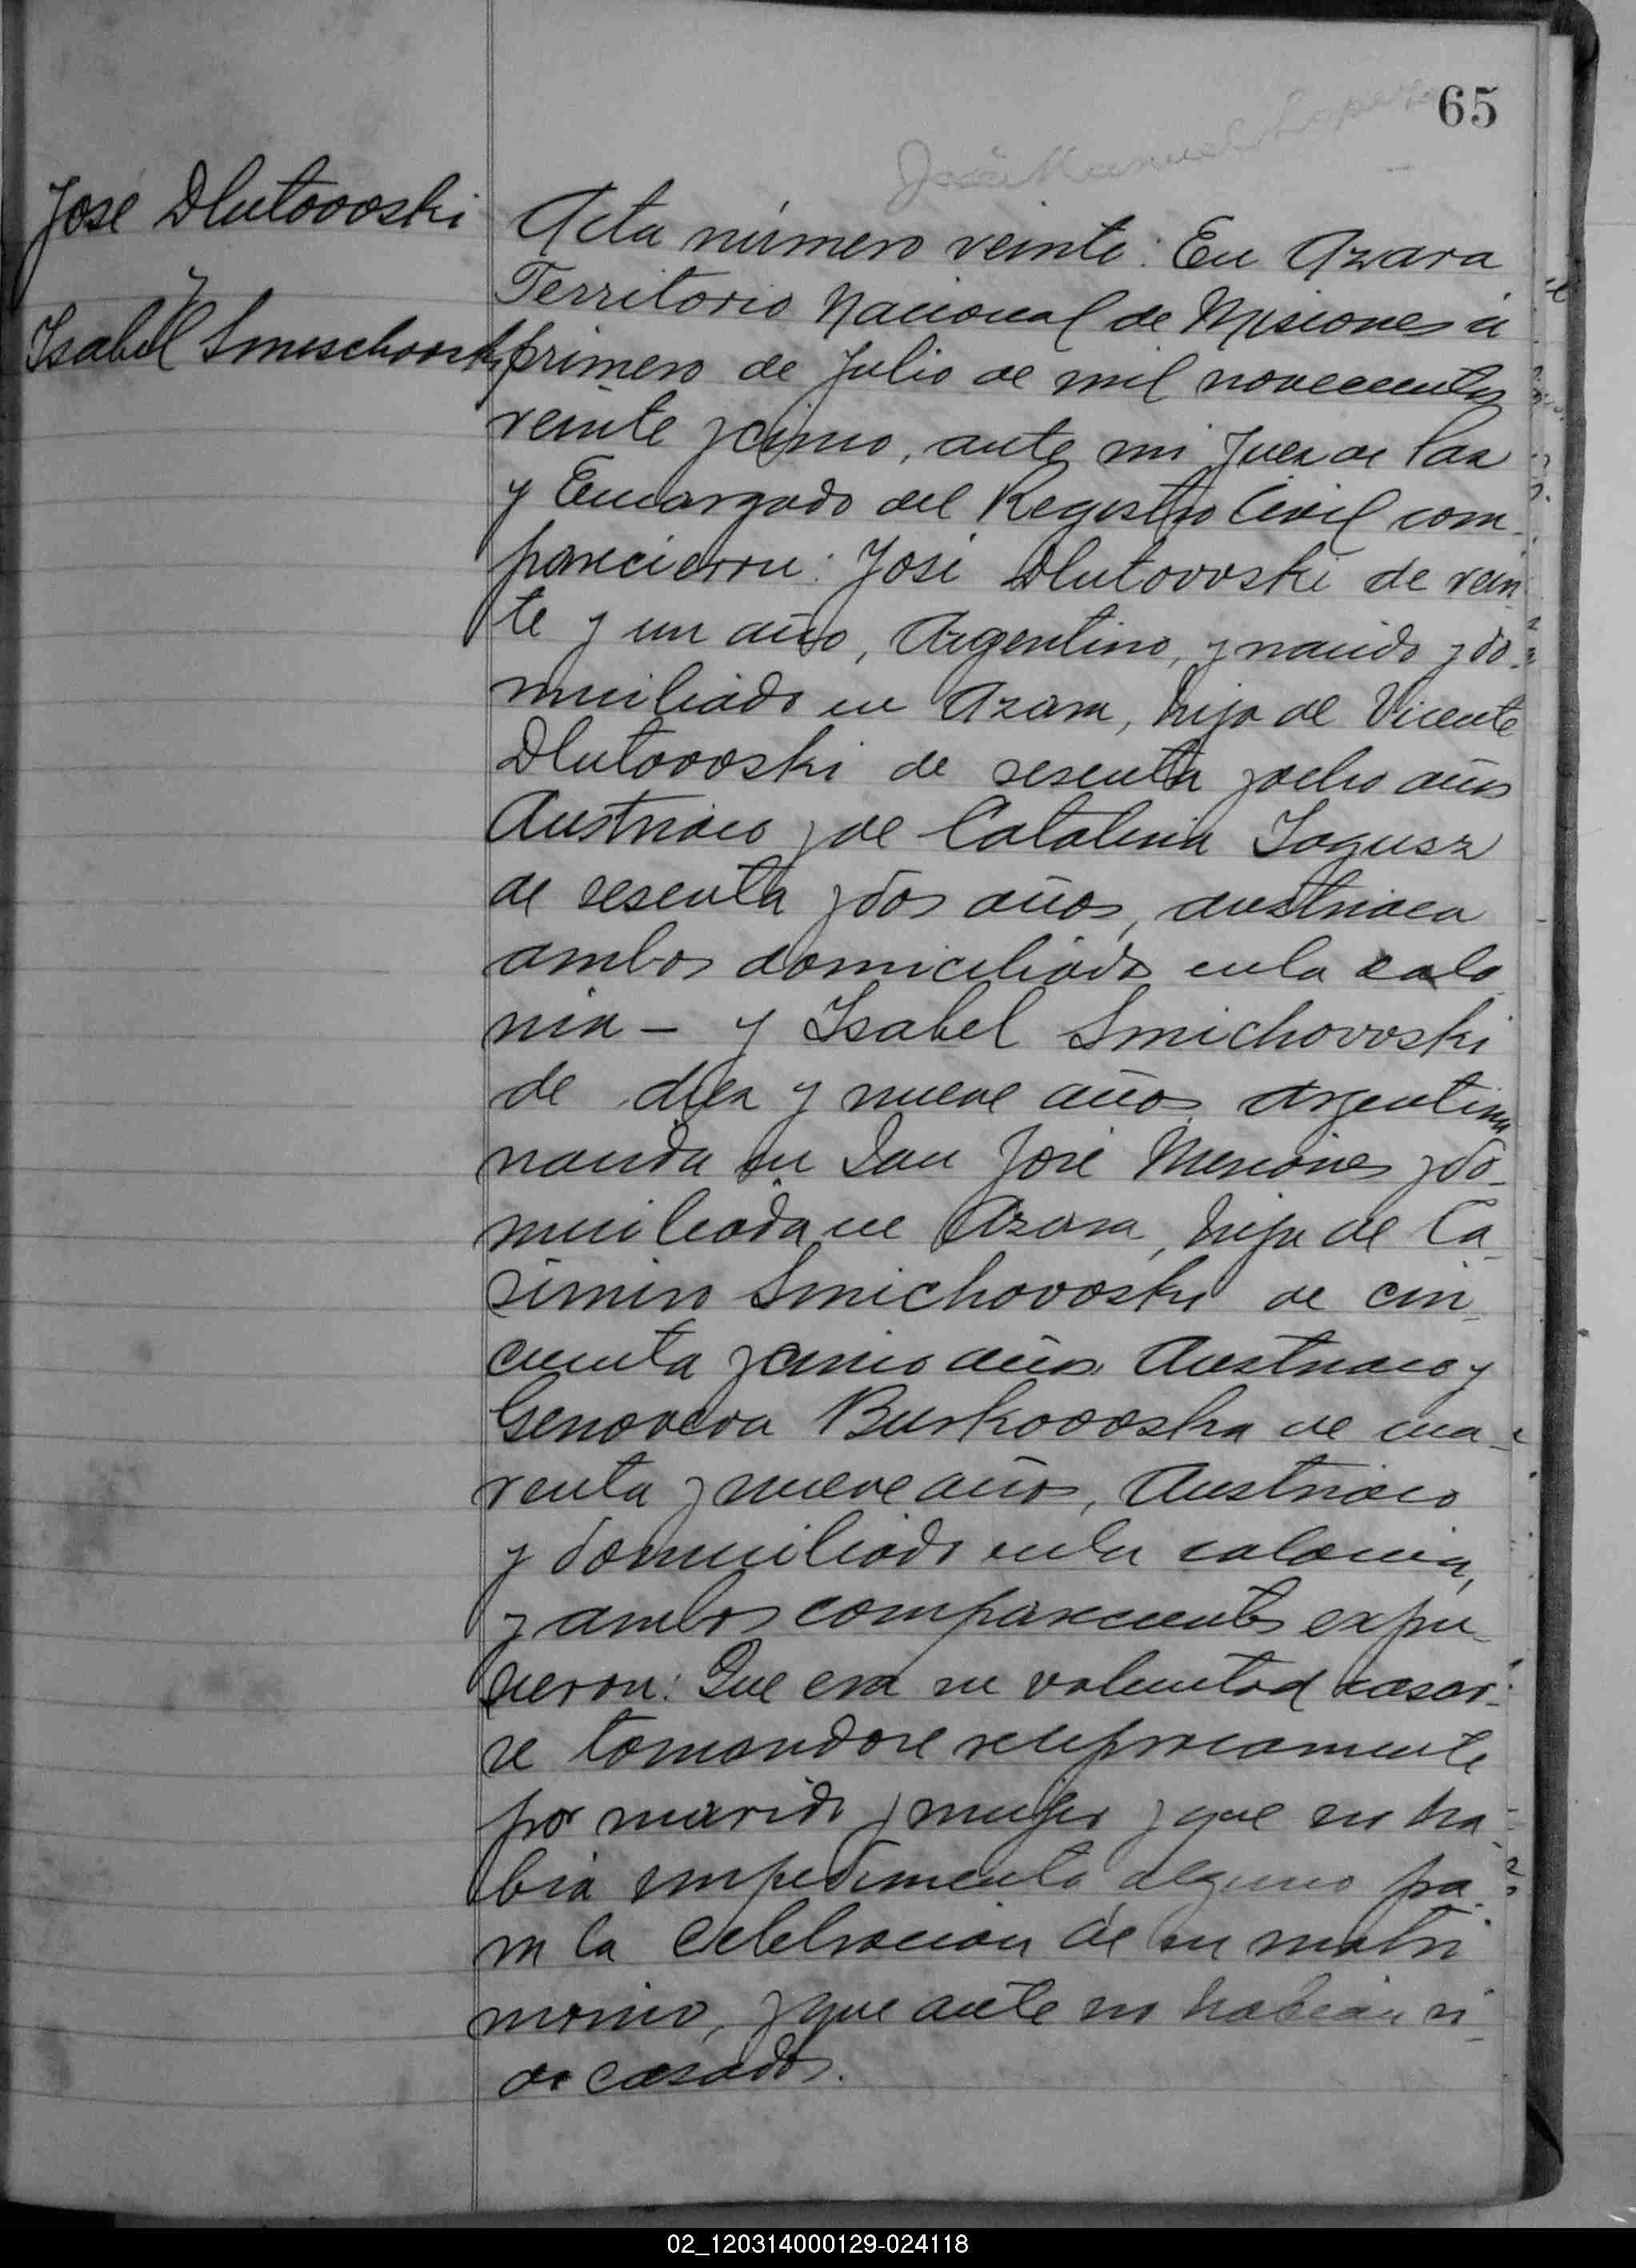 65
José Manuel Lopez
José Dlutovoski
y
Isabel Smischovski
Acta número veinte: En Azara
Territorio Nacional de Misiones á
primero de Julio de mil novecientos
veinte y cinco, ante mi Juez de Paz
y Encargado del Registro Civil com-
parecieron: José Dlutovoski de vein
te y un año, Argentino, y nacido y do-
miciliado en Azara, hijo de Vicente
Dlutovoski de sesenta y ocho años
Austriaco y de Catalina Jagusz
de sesenta y dos años, austriaca
ambos domiciliado en la colo
nia - y Isabel Smichovoski
de diez y nueve años, Argentina
nacida en San José Misiones y do-
miciliada en Azara, hija de Ca-
simiro Smichovoski de cin-
cuenta y cinco años, Austriaco y
Genoveva Burkovoska de cua-
renta y nueve años, Austriaco
y domiciliado en la colonia,
y ambos comparecientes expu-
sieron: Que era su voluntad casar-
se tomandose reciprocamente
por marido y mujer y que no ha-
bia impedimento alguno pa-
ra la celebracion de su matri
monio, y que ante no habian si-
do casados.
02_120314000129-024118